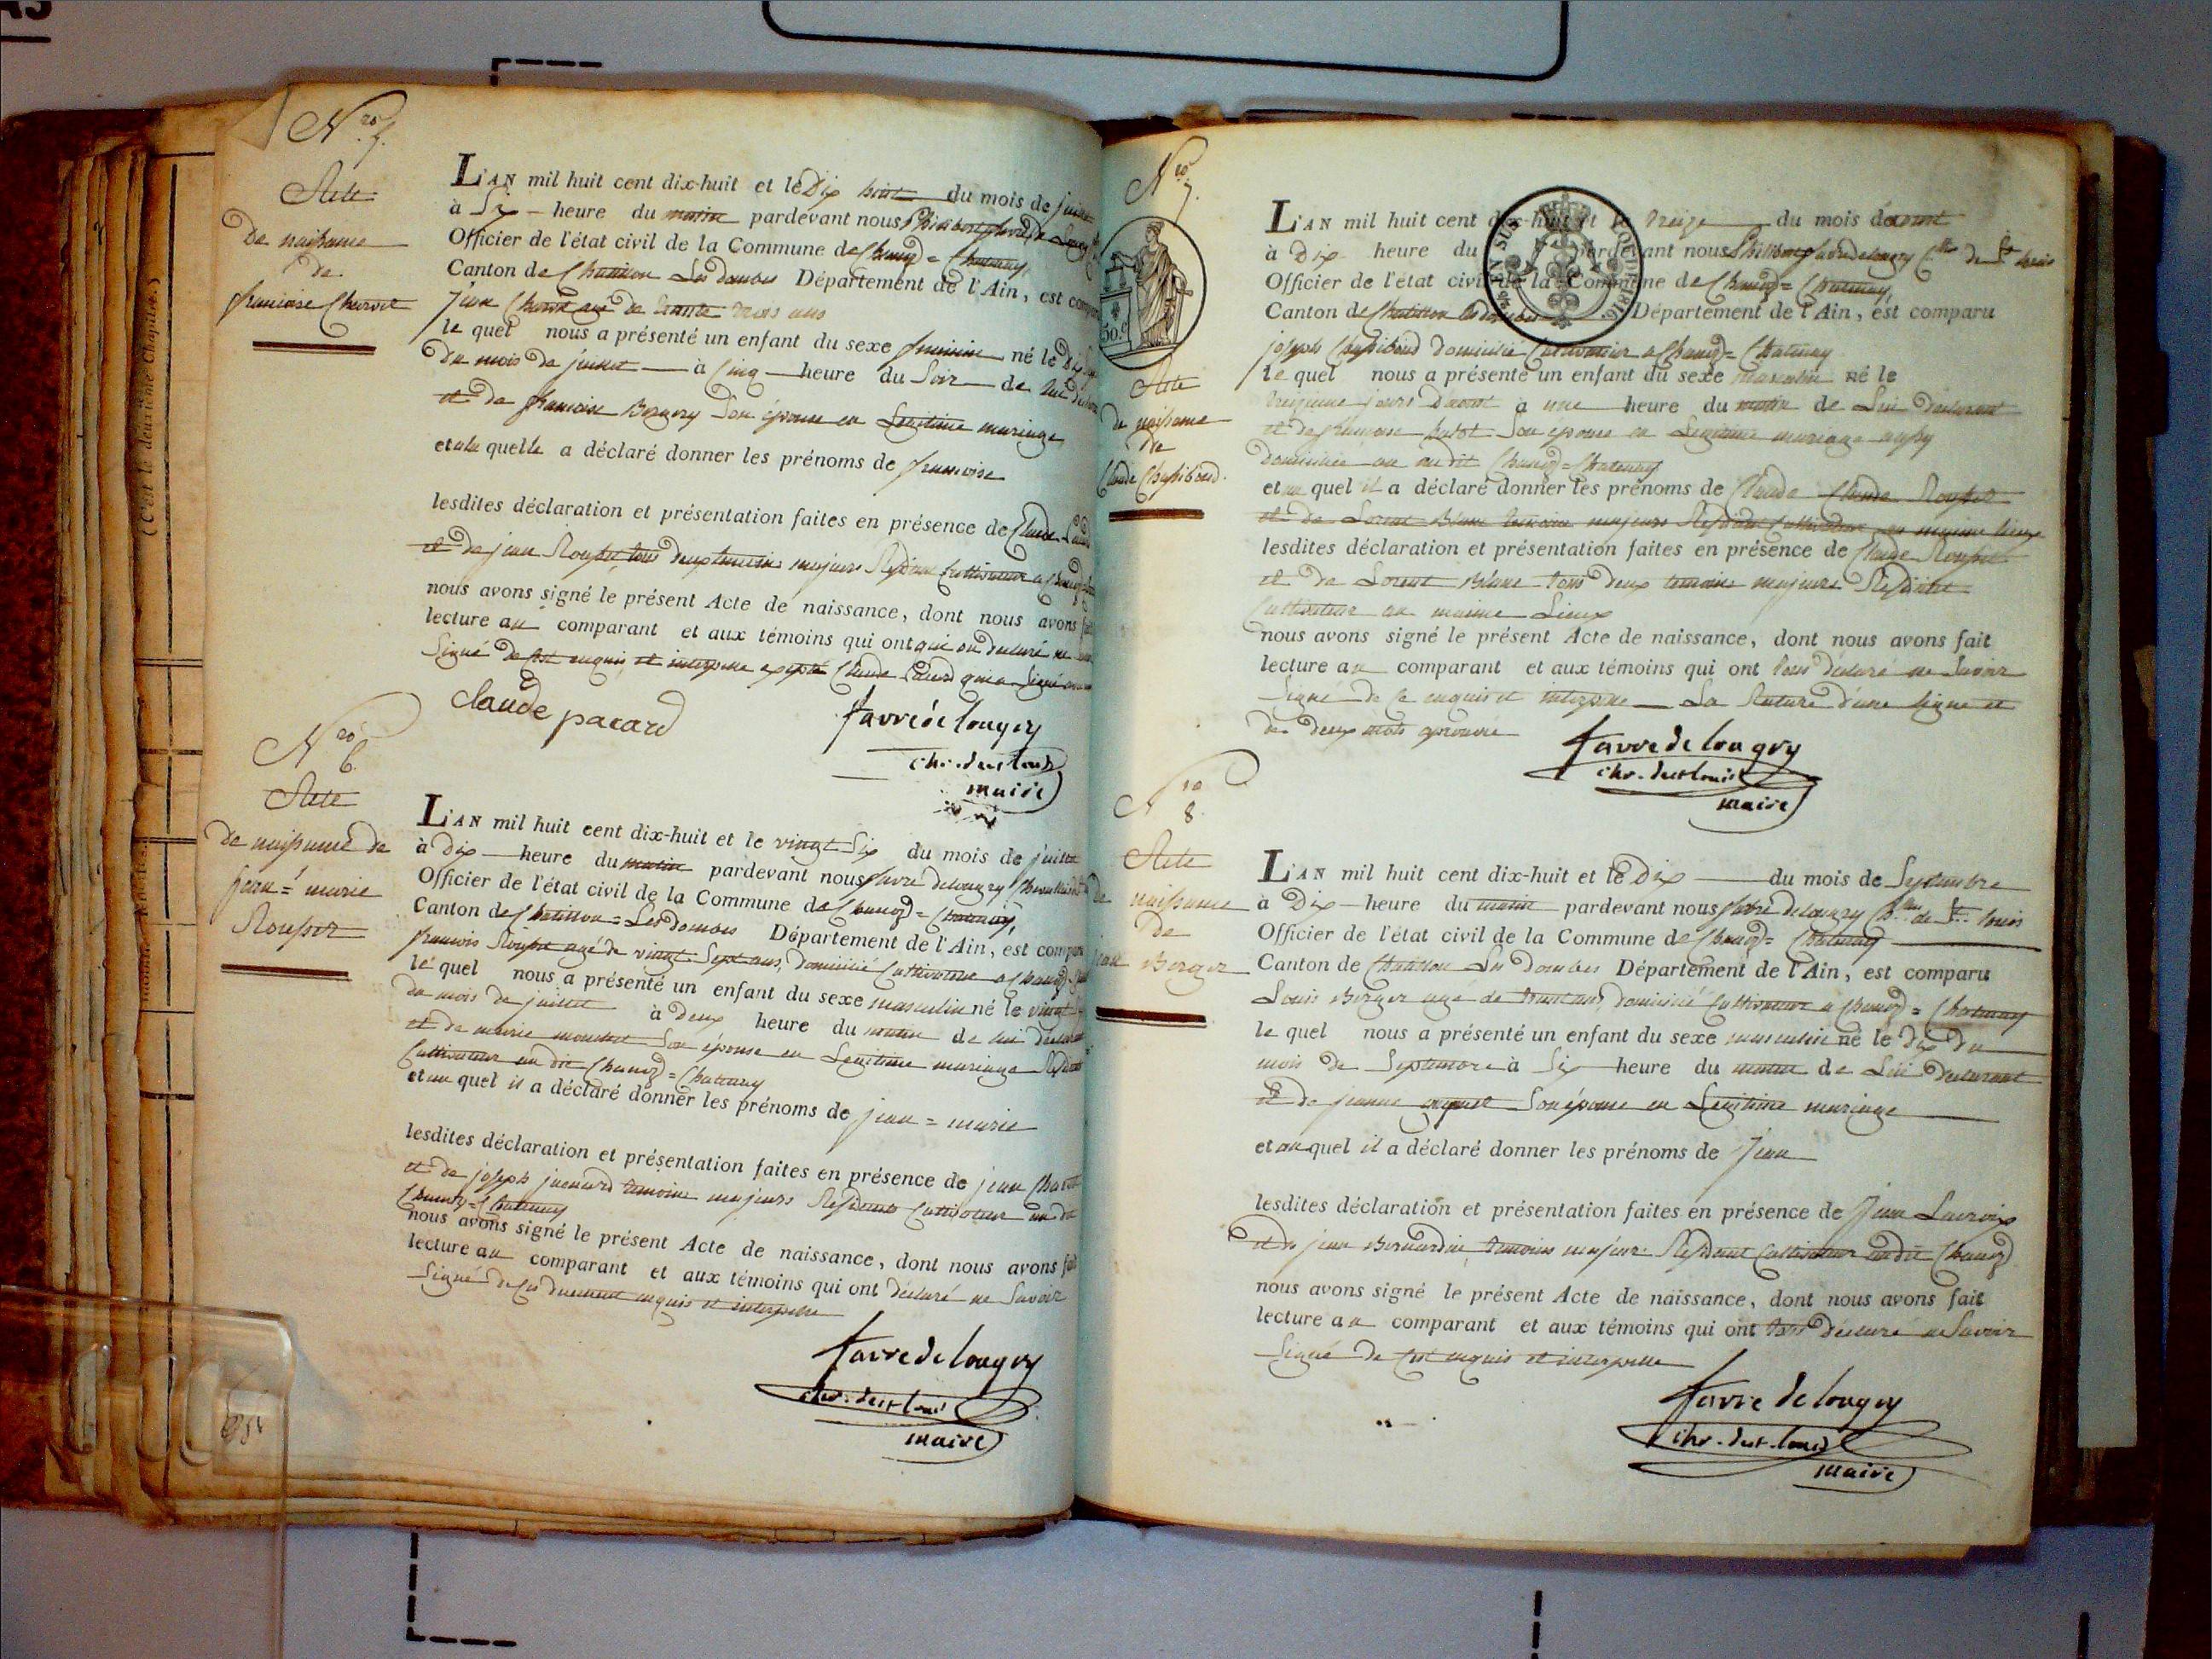 A3
(C'est le deuxième Chapitre.)
Nro 5.
Acte
de naissance
de
francoise Charvet
L'AN mil huit cent dix-huit et le Dix huit du mois de juillet
à Six heure du matin pardevant nous Philibert favre de Longry
Officier de l'état civil de la Commune de Chanoz = Chatenay,
Canton de Chatillon Les dombes Département de l'Ain, est comparu
jean Charvet agé de trante trois ans
le quel nous a présenté un enfant du sexe feminin né le Dix
du mois de juillet à Cinq heure du Soir de lui declarant
et de francoise Son épouse en Legitime mariage
et a la quelle a déclaré donner les prénoms de francoise
lesdites déclaration et présentation faites en présence de Claude
et de jean Rousset tous deux temoins majeurs Residant Cultivateur a Chanoz
nous avons signé le présent Acte de naissance, dont nous avons fait
lecture au comparant et aux témoins qui ont declaré ne
Signé de Ce enquis et interpelle excepté Claude Pacard qui a Signé
claude pacard
favre de longry
chr. de st louis
maire
Nro 6.
Acte
de naissance de
jean = marie
Rousset
L'AN mil huit cent dix-huit et le vingt Six du mois de juillet
à Dix heure du matin pardevant nous favre delongry
Officier de l'état civil de la Commune de Chanoz = Chatenay,
Canton de Chatillon = Les dombes Département de l'Ain, est comparu
francois Rousset agé de vingt Sept ans, domicilié Cultivateur a Chanoz
le quel nous a présenté un enfant du sexe masculin né le vingt
du mois de juillet à Deux heure du matin de lui declarant
et de marie Son épouse en Legitime mariage Residant
Cultivateur au dit Chanoz = Chatenay
et au quel il a déclaré donner les prénoms de jean = marie
lesdites déclaration et présentation faites en présence de jean Charvet
et de joseph temoins majeurs Residants Cultivateur au dit
Chanoz = Chatenay
nous avons signé le présent Acte de naissance, dont nous avons fait
lecture au comparant et aux témoins qui ont declaré ne Savoir
Signé de Ces duement enquis et interpelle
favre de longry
chr. de st louis
maire
Nro 7.
50.c
Acte
de naissance
de
Claude Chassiboud
L'AN mil huit cent dix-huit et le treize du mois daoust
à Dix heure du pardevant nous Philibert favre delongry Cher de St louis
Officier de l'état civil de la Commune de Chanoz = Chatenay,
Canton de Chatillon les dombes Département de l'Ain, est comparu
joseph Chassiboud domicilié Cultivateur a Chanoz = Chatenay
le quel nous a présenté un enfant du sexe masculin né le
treizieme jours Daoust à une heure du matin de Lui declarant
et de francoise Son epouse en Legitime mariage aussy
domiciliée au au dit Chanoz = Chatenay
et au quel il a déclaré donner les prénoms de Claude Claude Rousset
et de Lorent Blanc temoins majeurs Residant Cultivateur au maime lieux
lesdites déclaration et présentation faites en présence de Claude Rousset
et de Lorent Blanc tous deux temoins majeurs Residant
Cultivateur au maime Lieux
nous avons signé le présent Acte de naissance, dont nous avons fait
lecture au comparant et aux témoins qui ont tous declaré ne Savoir
Signé de Ce enquis et interpelle La Rature d'une ligne et
de deux mots aprouvée
favre de longry
chr. de st louis
maire
Nro 8.
Acte
de naissance
de
jean Berger
L'AN mil huit cent dix-huit et le Dix du mois de Septembre
à Dix heure du matin pardevant nous favre delongry Cher de St louis
Officier de l'état civil de la Commune de Chanoz = Chatenay
Canton de Chatillon Les dombes Département de l'Ain, est comparu
Louis Berger agé de trant ans, domicilié Cultivateur a Chanoz = Chatenay
le quel nous a présenté un enfant du sexe masculin né le dix du
mois de Septembre à Six heure du matin de Lui declarant
et de jeanne Son épouse en Legitime mariage
et au quel il a déclaré donner les prénoms de jean
lesdites déclaration et présentation faites en présence de jean Lacroix
et de jean Bernardin, temoins majeur Residant Cultivateur au dit Chanoz
nous avons signé le présent Acte de naissance, dont nous avons fait
lecture au comparant et aux témoins qui ont tous declaré ne Savoir
Signé de Ce enquis et interpelle
favre de longry
chr. de st. louis
maire